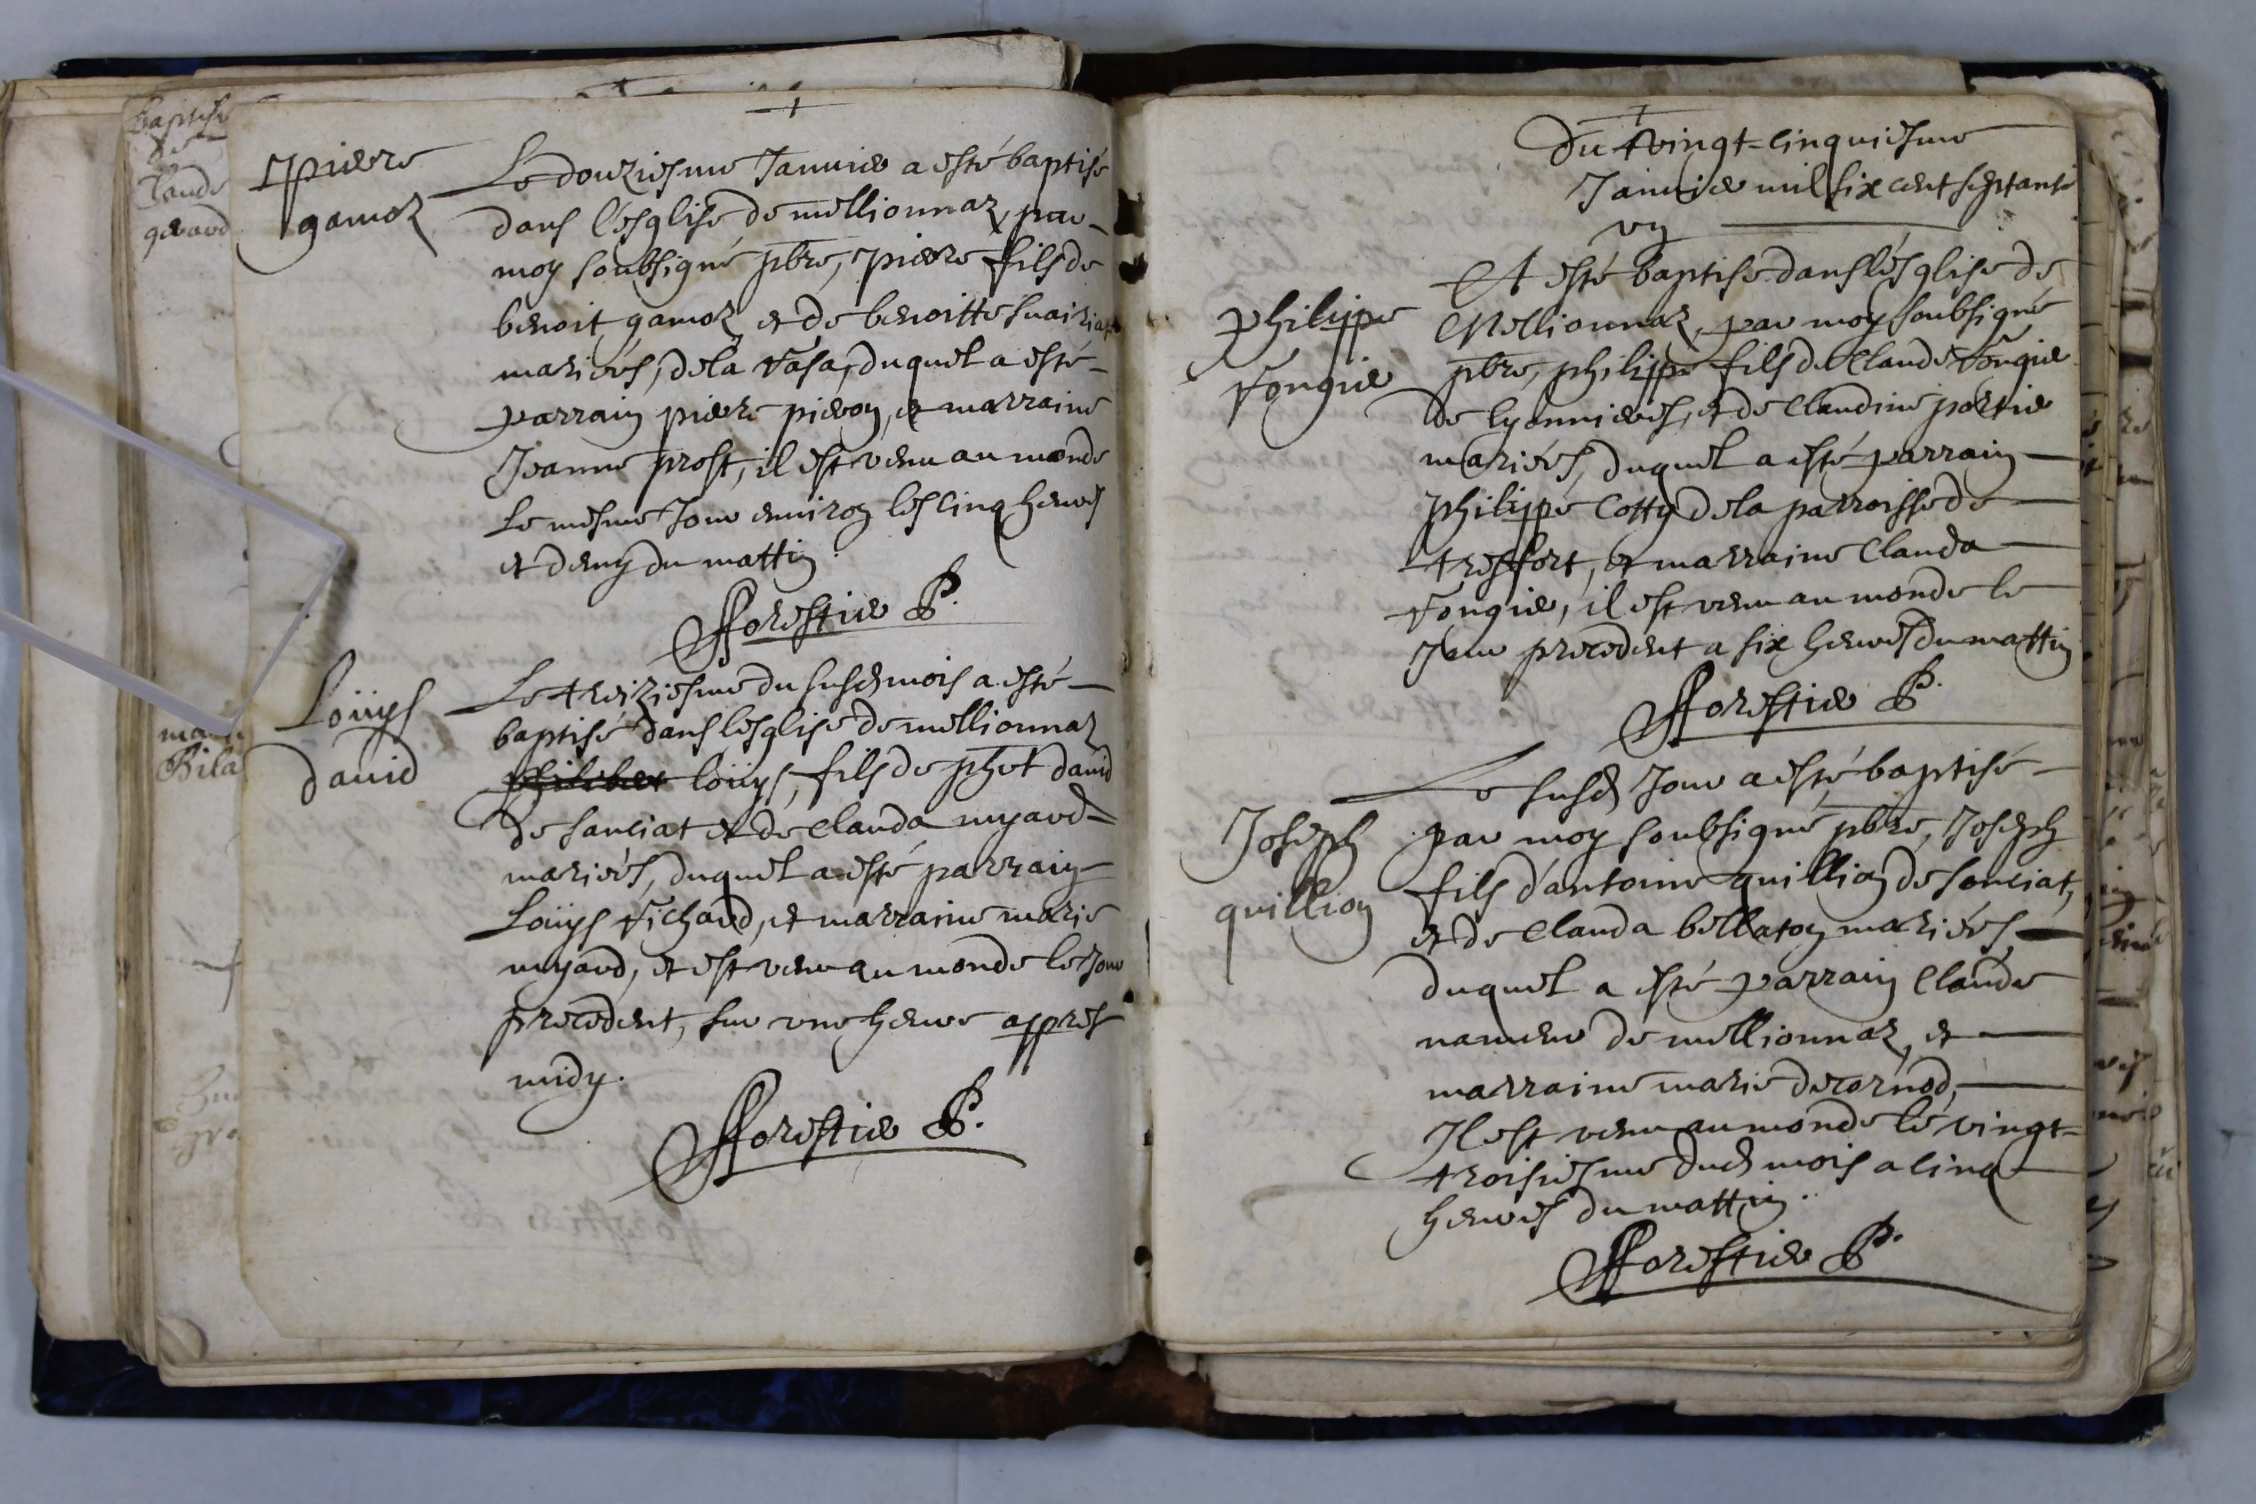 Baptise
de
Claude
gerard
Pierre
gamoz
Le douziesme Januier a esté baptisé
dans l'esglise de meillionnaz, par
moy soubsigné pbre, pierre fils de
benoit gamoz, et de benoitte
mariés, de la Vasa, duquel a esté
parrain pierre pieron, et marraine
Jeanne prost, il est venu au monde
le mesme Jour enuiron les cinq heures
et demy du mattin.
fforestier P.
Loüys
dauid
Le treiziesme du susd mois a esté
baptisé dans lesglise de meillionnaz
philibert loüys, fils de phet dauid
de sanciat et de Clauda myard
mariés, duquel a esté parrain
Loüys Vichard, et marraine marie
myard, et est venu au monde le Jour
precedent, sur vne heure appres
midy.
fforestier P.
Du vingt-cinquiesme
Januier mil six cent septante
vn
A esté baptise dans lésglise de
Meillionnaz, par moy soubsigné
Philippe
Vongier
pbre, philippe fils de Claude Vongier
de lyonnieres, et de Claudine portier
mariés, duquel a esté parrain
philippe Cotty de la parroisse de
treffort, et marraine Clauda
Vongier, il est venu au monde le
Jour precedent a six heures du mattin
fforestier P.
Le susd Jour a esté baptisé
Joseph
quillion
par moy soubsigné pbre, Joseph
fils d'antoine quillion de sanciat,
et de Clauda bellaton mariés,
duquel a esté parrain Claude
de meillionnaz, et
marraine marie decornod,
Il est venu au monde le vingt-
troisiesme dud mois a cinq
heures du mattin.
fforestier P.